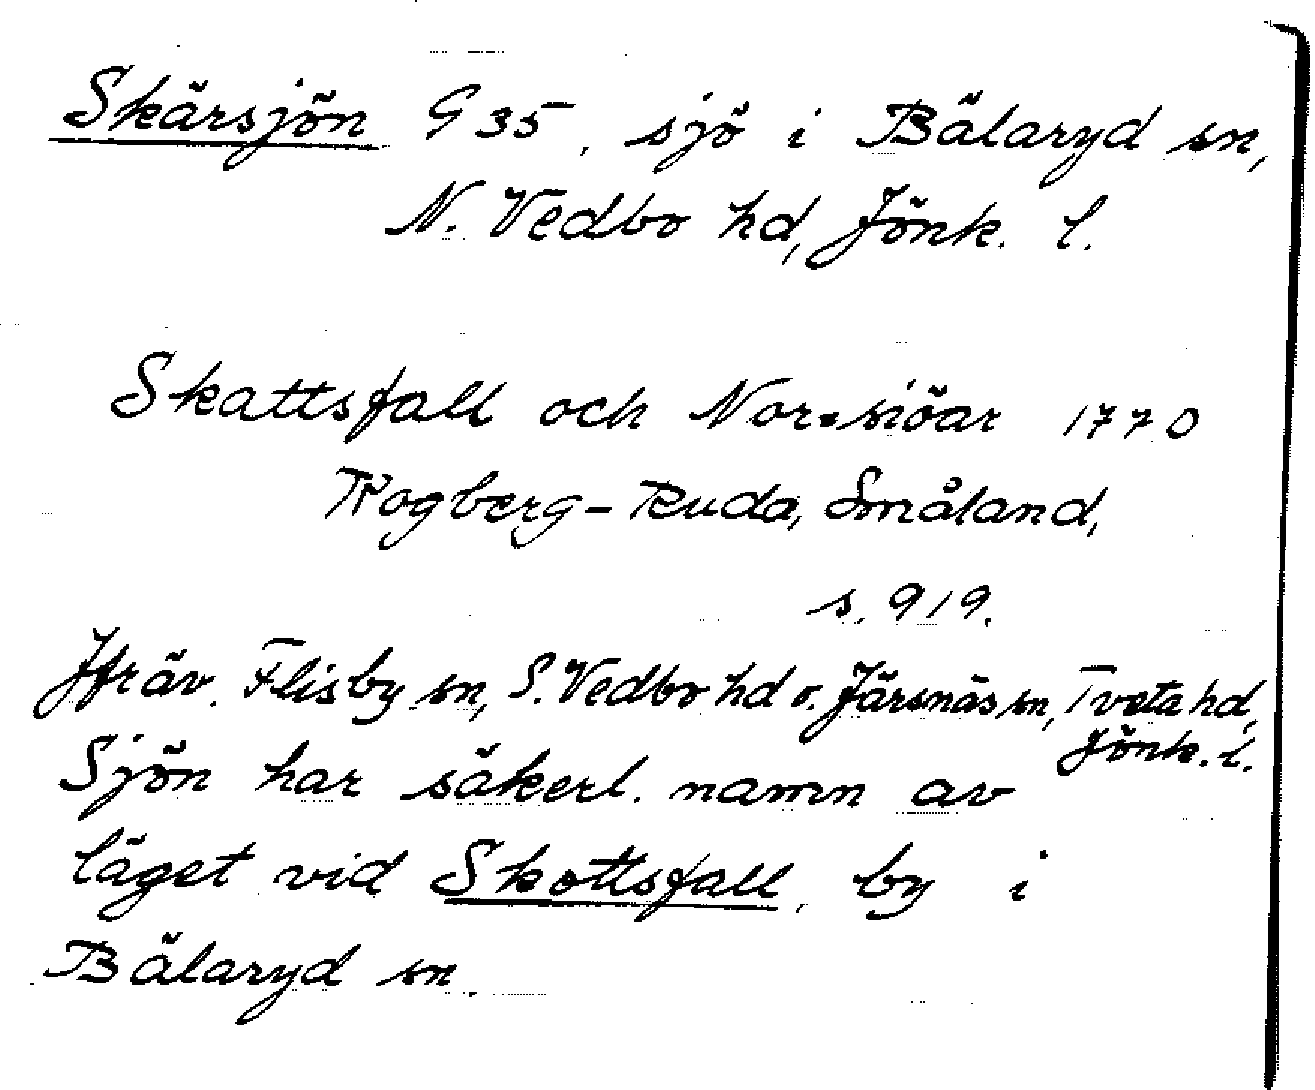 Skärsjön G 35, sjö i Bälaryd sn,
N. Vedbo hd, Jönk. l.
Skattsfall och Nor-siöar 1770
Rogberg-Ruda, Småland,
s. 919.
Jfr äv. Flisby sn, S. Vedbo hd o. Järsnäs sn, Tveta hd,
Jönk. l.
Sjön har säkerl. namn av
läget vid Skottsfall, by i
Bälaryd sn.